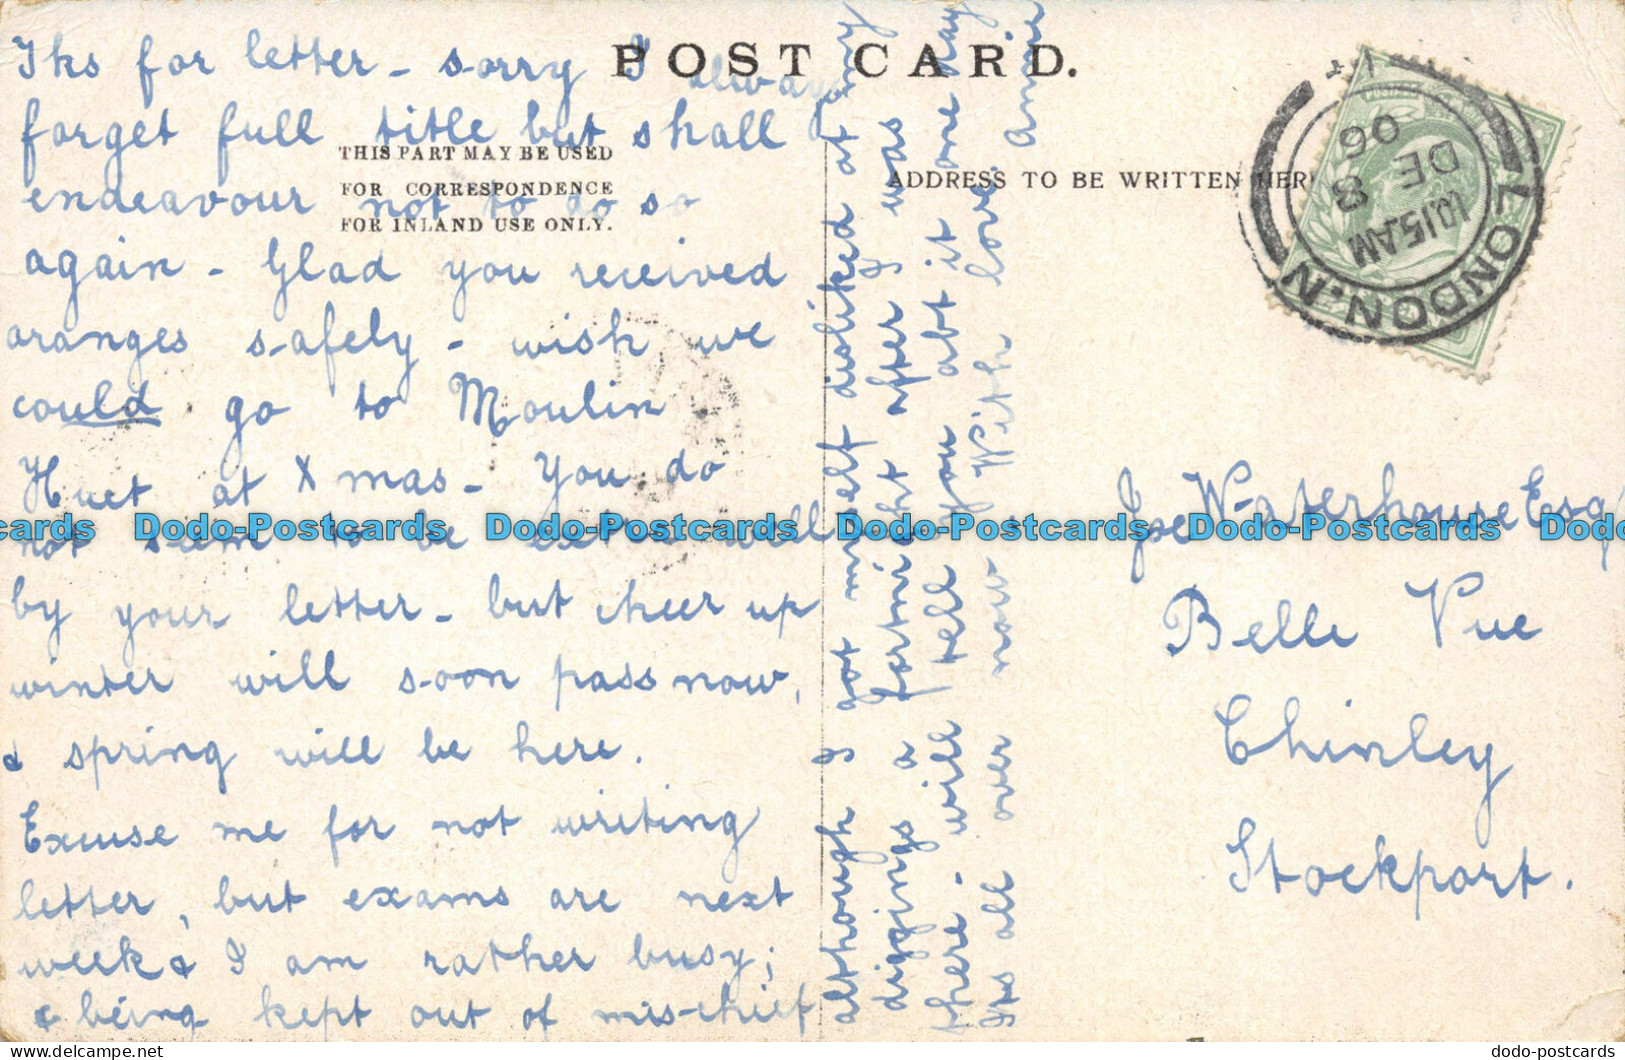 POST CARD.
THIS PART MAY BE USED
FOR CORRESPONDENCE
FOR INLAND USE ONLY.
ADDRESS TO BE WRITTEN HER
Tks for letter - sorry I always
forget full title but shall
endeavour not to do so
again - Glad you received
oranges safely - wish we
could go to Moulin
Huet at Xmas - You do
not seem to be extra well
by your letter - but cheer up
winter will soon pass now,
& spring will be here.
Excuse me for not writing
letter, but exams are next
week & I am rather busy;
& being kept out of mischief
although I got myself disliked at my
diggings a fortnight after I was
there - will tell you abt it one day
Its all over now. With love Annie
Joe Waterhouse Esq
Belle Vue
Chinley
Stockport.
LONDON.N
10.15 AM
8
DE
06
cards Dodo-Postcards Dodo-Postcards Dodo-Postcards Dodo-Postcards Dodo
dodo-postcards
dodo-postcards.com